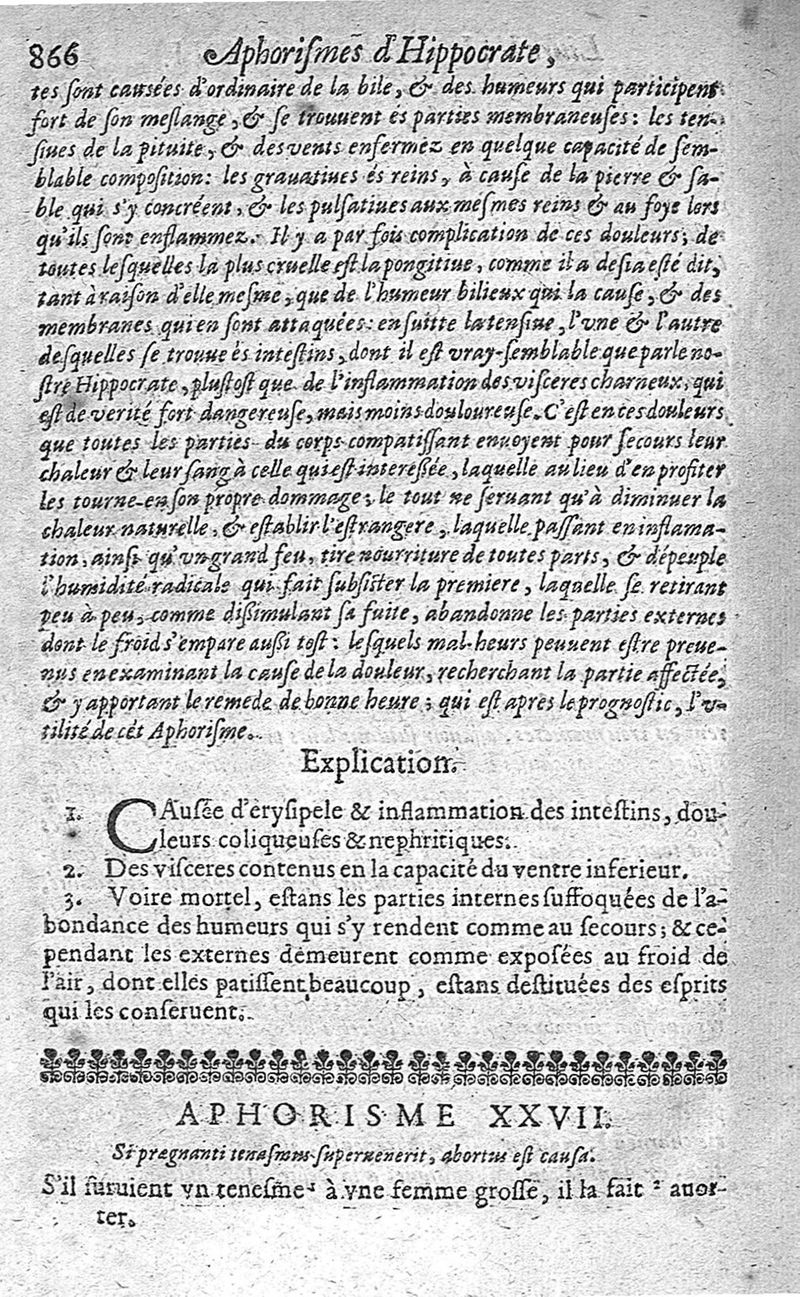 866 Aphoriſmes d'Hippocrate,
tes ſont cauſées d'ordinaire de la bile, & des humeurs qui participent
fort de ſon meſlange, & ſe trouuent és parties membraneuſes: les ten-
ſiues de la pituite, & des vents enfermez en quelque capacité de ſem-
blable compoſition: les grauatiues és reins, à cauſe de la pierre & ſa-
ble qui s'y concréent, & les pulſatiues aux méſmes reins & au foye lors
qu'ils ſont enflammez. Il y a par fois complication de ces douleurs; de
toutes leſquelles la plus cruelle eſt la pongitiue, comme il a deſia eſté dit,
tant à raiſon d'elle meſme, que de l'humeur bilieux qui la cauſe, & des
membranes qui en ſont attaquées: en ſuitte la tenſiue, l'vne & l'autre
deſquelles ſe trouue és inteſtins, dont il eſt vray-ſemblable que parle no-
ſtre Hippocrate, pluſtoſt que de l'inflammation des viſceres charneux, qui
eſt de verité fort dangereuſe, mais moins douloureuſe. C'eſt en ces douleurs
que toutes les parties du corps compatiſſant enuoyent pour ſecours leur
chaleur & leur ſang à celle qui eſt intereſſée, laquelle au lieu d'en profiter
les tourne en ſon propre dommage; le tout ne ſeruant qu'à diminuer la
chaleur naturelle, & eſtablir l'eſtrangere, laquelle paſſant en inflama-
tion, ainſi qu'vn grand feu, tire nourriture de toutes parts, & dépeuple
l'humidité radicale qui fait ſubſiſter la premiere, laquelle ſe retirant
peu à peu, comme diſſimulant ſa fuite, abandonne les parties externes
dont le froid s'empare auſſi toſt: leſquels mal-heurs peuuent eſtre preue-
nus en examinant la cauſe de la douleur, recherchant la partie affectée,
& y apportant le remede de bonne heure; qui eſt apres le prognoſtic, l'v-
tilité de cét Aphoriſme.
Explication.
1. CAuſée d'eryſipele & inflammation des inteſtins, dou-
leurs coliqueuſes & nephritiques.
2. Des viſceres contenus en la capacité du ventre inferieur.
3. Voire mortel, eſtans les parties internes ſuffoquées de l'a-
bondance des humeurs qui s'y rendent comme au ſecours; & ce-
pendant les externes demeurent comme expoſées au froid de
l'air, dont elles patiſſent beaucoup, eſtans deſtituées des eſprits
qui les conſeruent.
APHORISME XXVII.
Si prægnanti tenaſmus ſuperuenerit, abortus eſt cauſa.
S'il ſuruient vn teneſme ¹ à vne femme groſſe, il la fait ² auor-
ter.